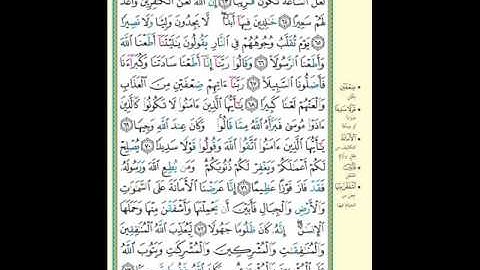 لَعَلَّ ٱلسَّاعَةَ تَكُونُ قَرِيبًا ٦٣ إِنَّ ٱللَّهَ لَعَنَ ٱلْكَٰفِرِينَ وَأَعَدَّ
لَهُمْ سَعِيرًا ٦٤ خَٰلِدِينَ فِيهَآ أَبَدًا لَّا يَجِدُونَ وَلِيًّا وَلَا نَصِيرًا
٦٥ يَوْمَ تُقَلَّبُ وُجُوهُهُمْ فِي ٱلنَّارِ يَقُولُونَ يَٰلَيْتَنَآ أَطَعْنَا ٱللَّهَ
وَأَطَعْنَا ٱلرَّسُولَا۠ ٦٦ وَقَالُوا۟ رَبَّنَآ إِنَّآ أَطَعْنَا سَادَتَنَا وَكُبَرَآءَنَا
فَأَضَلُّونَا ٱلسَّبِيلَا۠ ٦٧ رَبَّنَآ ءَاتِهِمْ ضِعْفَيْنِ مِنَ ٱلْعَذَابِ
وَٱلْعَنْهُمْ لَعْنًا كَبِيرًا ٦٨ يَٰٓأَيُّهَا ٱلَّذِينَ ءَامَنُوا۟ لَا تَكُونُوا۟ كَٱلَّذِينَ
ءَاذَوْا۟ مُوسَىٰ فَبَرَّأَهُ ٱللَّهُ مِمَّا قَالُوا۟ وَكَانَ عِندَ ٱللَّهِ وَجِيهًا ٦٩
يَٰٓأَيُّهَا ٱلَّذِينَ ءَامَنُوا۟ ٱتَّقُوا۟ ٱللَّهَ وَقُولُوا۟ قَوْلًا سَدِيدًا ٧٠ يُصْلِحْ
لَكُمْ أَعْمَٰلَكُمْ وَيَغْفِرْ لَكُمْ ذُنُوبَكُمْ وَمَن يُطِعِ ٱللَّهَ وَرَسُولَهُۥ
فَقَدْ فَازَ فَوْزًا عَظِيمًا ٧١ إِنَّا عَرَضْنَا ٱلْأَمَانَةَ عَلَى ٱلسَّمَٰوَٰتِ
وَٱلْأَرْضِ وَٱلْجِبَالِ فَأَبَيْنَ أَن يَحْمِلْنَهَا وَأَشْفَقْنَ مِنْهَا وَحَمَلَهَا
ٱلْإِنسَٰنُ إِنَّهُۥ كَانَ ظَلُومًا جَهُولًا ٧٢ لِّيُعَذِّبَ ٱللَّهُ ٱلْمُنَٰفِقِينَ
وَٱلْمُنَٰفِقَٰتِ وَٱلْمُشْرِكِينَ وَٱلْمُشْرِكَٰتِ وَيَتُوبَ ٱللَّهُ
ضِعْفَيْنِ
قَوْلًا سَدِيدًا
ٱلْأَمَانَةَ